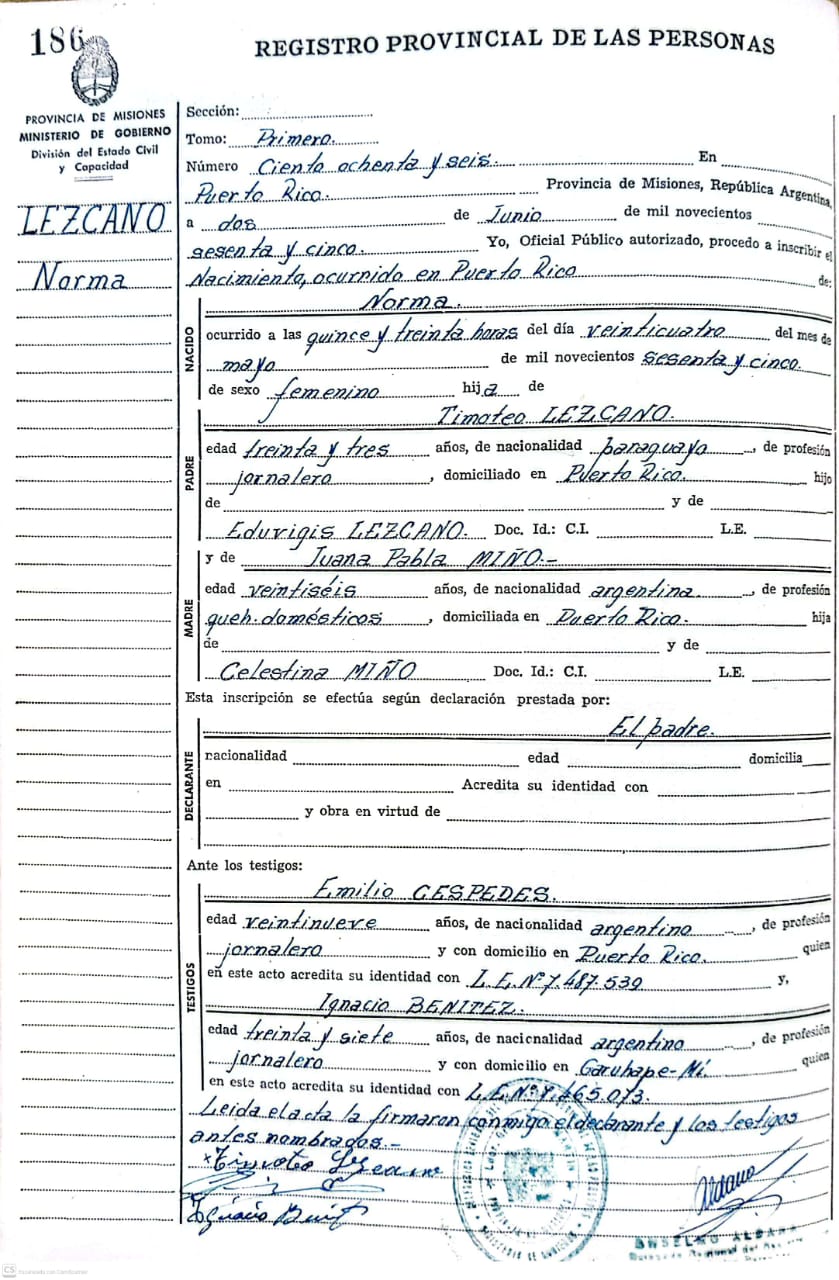 186
REGISTRO PROVINCIAL DE LAS PERSONAS
PROVINCIA DE MISIONES
MINISTERIO DE GOBIERNO
División del Estado Civil
y Capacidad
LEZCANO
Norma
Sección:
Tomo: Primero.
Número Ciento ochenta y seis. En
Puerto Rico. Provincia de Misiones, República Argentina,
a dos de Junio de mil novecientos
sesenta y cinco. Yo, Oficial Público autorizado, procedo a inscribir el
Nacimiento, ocurrido en Puerto Rico de:
Norma.
NACIDO
ocurrido a las quince y treinta horas del día veinticuatro del mes de
mayo de mil novecientos sesenta y cinco.
de sexo femenino hija de
Timoteo LEZCANO.
PADRE
edad treinta y tres años, de nacionalidad paraguayo, de profesión
jornalero, domiciliado en Puerto Rico. hijo
de y de
Eduvigis LEZCANO. Doc. Id.: C.I. L.E.
y de Juana Pabla MIÑO.-
MADRE
edad veintiséis años, de nacionalidad argentina, de profesión
queh. domésticos, domiciliada en Puerto Rico. hija
de y de
Celestina MIÑO Doc. Id.: C.I. L.E.
Esta inscripción se efectúa según declaración prestada por:
El padre.
DECLARANTE
nacionalidad edad domicilia
en Acredita su identidad con
y obra en virtud de
Ante los testigos:
Emilio CESPEDES.
TESTIGOS
edad veintinueve años, de nacionalidad argentino, de profesión
jornalero y con domicilio en Puerto Rico. quien
en este acto acredita su identidad con L.E.Nº7.487.539 y,
Ignacio BENITEZ.
edad treinta y siete años, de nacionalidad argentino, de profesión
jornalero y con domicilio en Garuhape-Mí quien
en este acto acredita su identidad con L.E.Nº7.465.073.
Leida el acta la firmaron conmigo el declarante y los testigos
antes nombrados.-
Timoteo
Ignacio
Aldana
ANSELMO ALDANA
CS